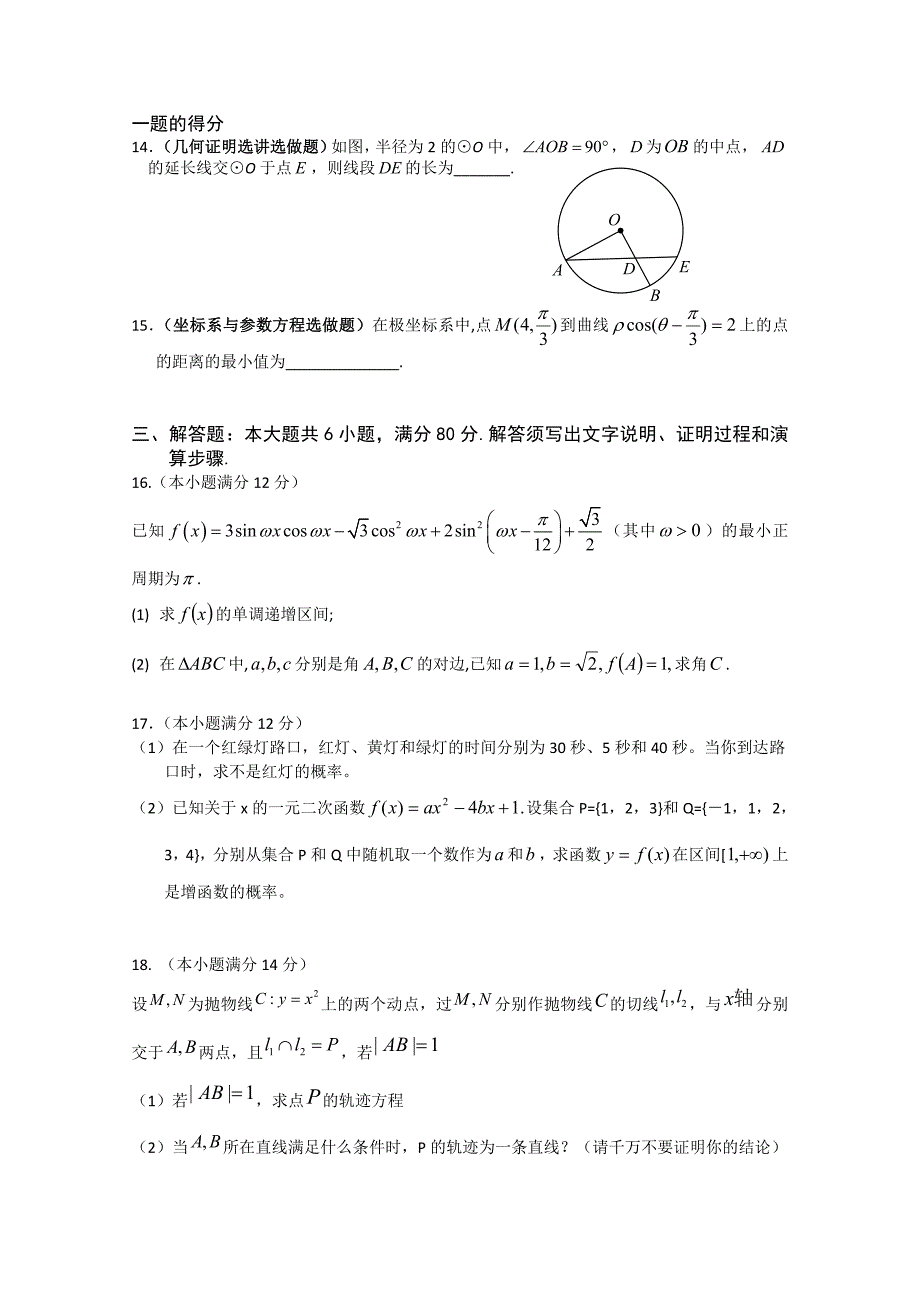 一题的得分
14.(几何证明选讲选做题)如图,半径为 2 的⊙O 中,∠AOB=90°,D 为 OB 的中点,AD
的延长线交⊙O 于点 E,则线段 DE 的长为_______.
O
A
D
E
B
15.(坐标系与参数方程选做题)在极坐标系中,点 M(4,π/3) 到曲线 ρcos(θ−π/3)=2 上的点
的距离的最小值为______________.
三、解答题:本大题共 6 小题,满分 80 分.解答须写出文字说明、证明过程和演
算步骤.
16.(本小题满分 12 分)
已知 f(x)=3sin ωx cos ωx−√3cos²ωx+2sin²(ωx−π/12)+√3/2(其中 ω>0)的最小正
周期为 π.
(1) 求 f(x) 的单调递增区间;
(2) 在 ΔABC 中,a,b,c 分别是角 A,B,C 的对边,已知 a=1,b=√2,f(A)=1,求角 C.
17.(本小题满分 12 分)
(1)在一个红绿灯路口,红灯、黄灯和绿灯的时间分别为 30 秒、5 秒和 40 秒。当你到达路
口时,求不是红灯的概率。
(2)已知关于 x 的一元二次函数 f(x)=ax²−4bx+1.设集合 P={1,2,3}和 Q={-1,1,2,
3,4},分别从集合 P 和 Q 中随机取一个数作为 a 和 b,求函数 y=f(x) 在区间[1,+∞) 上
是增函数的概率。
18. (本小题满分 14 分)
设 M,N 为抛物线 C:y=x² 上的两个动点,过 M,N 分别作抛物线 C 的切线 l₁,l₂,与 x轴 分别
交于 A,B 两点,且 l₁∩l₂=P,若 |AB|=1
(1)若 |AB|=1,求点 P 的轨迹方程
(2)当 A,B 所在直线满足什么条件时,P 的轨迹为一条直线?(请千万不要证明你的结论)